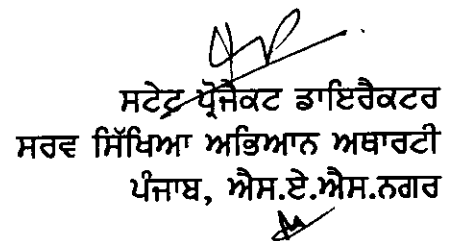 ਸਟੇਟ ਪ੍ਰੋਜੈਕਟ ਡਾਇਰੈਕਟਰ
ਸਰਵ ਸਿੱਖਿਆ ਅਭਿਆਨ ਅਥਾਰਟੀ
ਪੰਜਾਬ, ਐਸ.ਏ.ਐਸ.ਨਗਰ